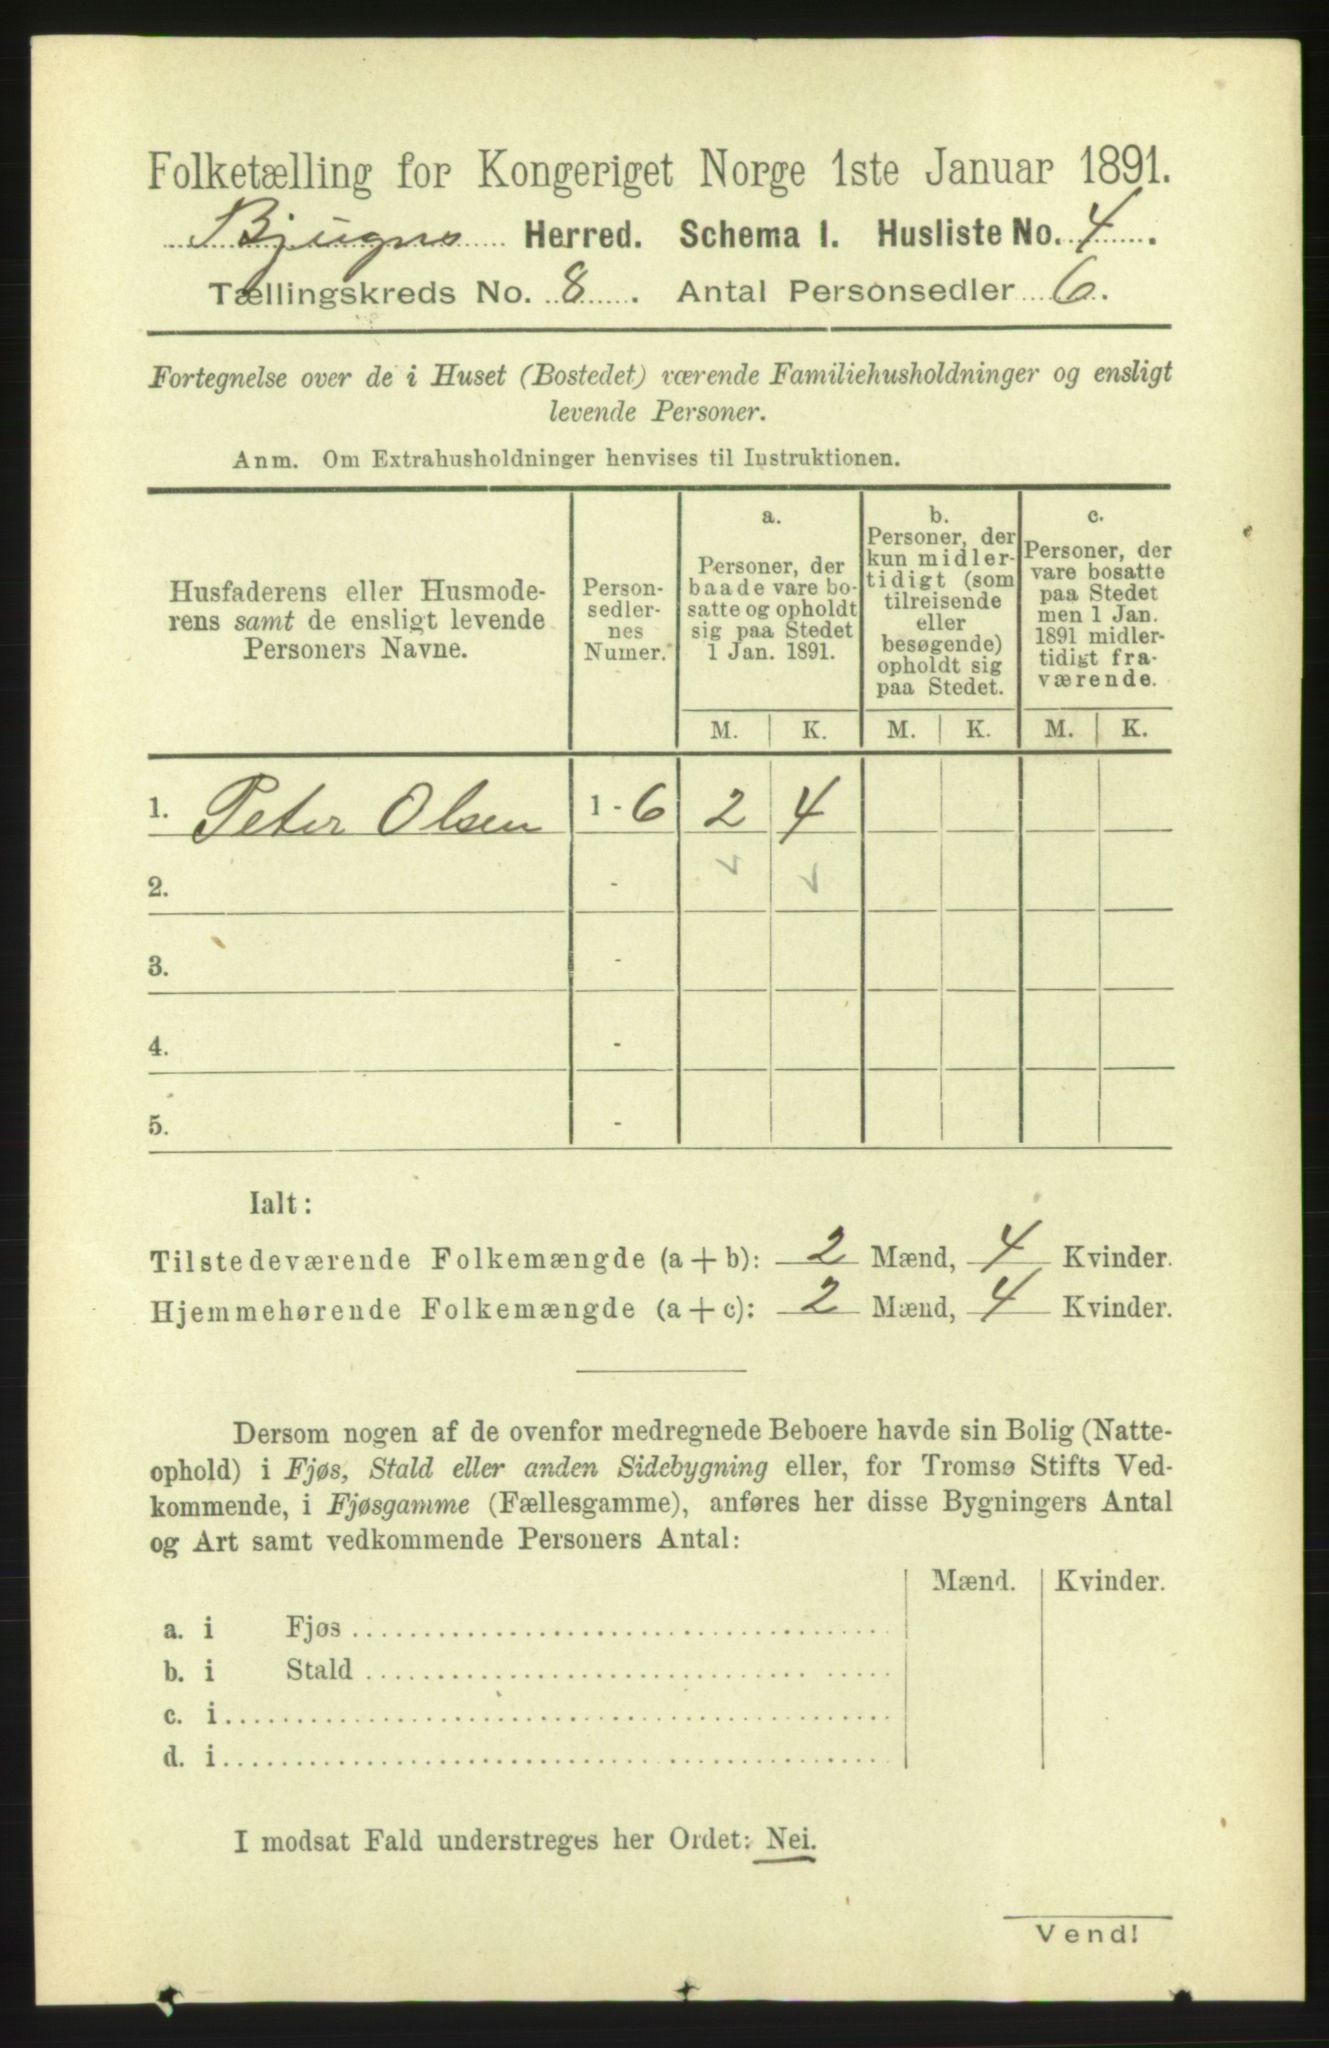 Folketælling for Kongeriget Norge 1ste Januar 1891.
Bjugns Herred. Schema 1. Husliste No. 4.
Tællingskreds No. 8. Antal Personsedler 6.
Fortegnelse over de i Huset (Bostedet) værende Familiehusholdninger og ensligt
levende Personer.
Anm. Om Extrahusholdninger henvises til Instruktionen.
Husfaderens eller Husmode-
rens samt de ensligt levende
Personers Navne.
Person-
sedler-
nes
Numer.
a.
Personer, der
baade vare bo-
satte og opholdt
sig paa Stedet
1 Jan. 1891.
b.
Personer, der
kun midler-
tidigt (som
tilreisende
eller
besøgende)
opholdt sig
paa Stedet.
c.
Personer, der
vare bosatte
paa Stedet
men 1 Jan.
1891 midler-
tidigt fra-
værende.
M. K. M. K. M. K.
1. Peter Olsen 1 - 6 2 4
2. -
3. -
4. -
5. -
Ialt:
Tilstedeværende Folkemængde (a + b): 2 Mænd, 4 Kvinder.
Hjemmehørende Folkemængde (a + c): 2 Mænd, 4 Kvinder.
Dersom nogen af de ovenfor medregnede Beboere havde sin Bolig (Natte-
ophold) i Fjøs, Stald eller anden Sidebygning eller, for Tromsø Stifts Ved-
kommende, i Fjøsgamme (Fællesgamme), anføres her disse Bygningers Antal
og Art samt vedkommende Personers Antal:
Mænd. Kvinder.
a. i Fjøs
b. i Stald
c. i
d. i
I modsat Fald understreges her Ordet: Nei.
Vend!